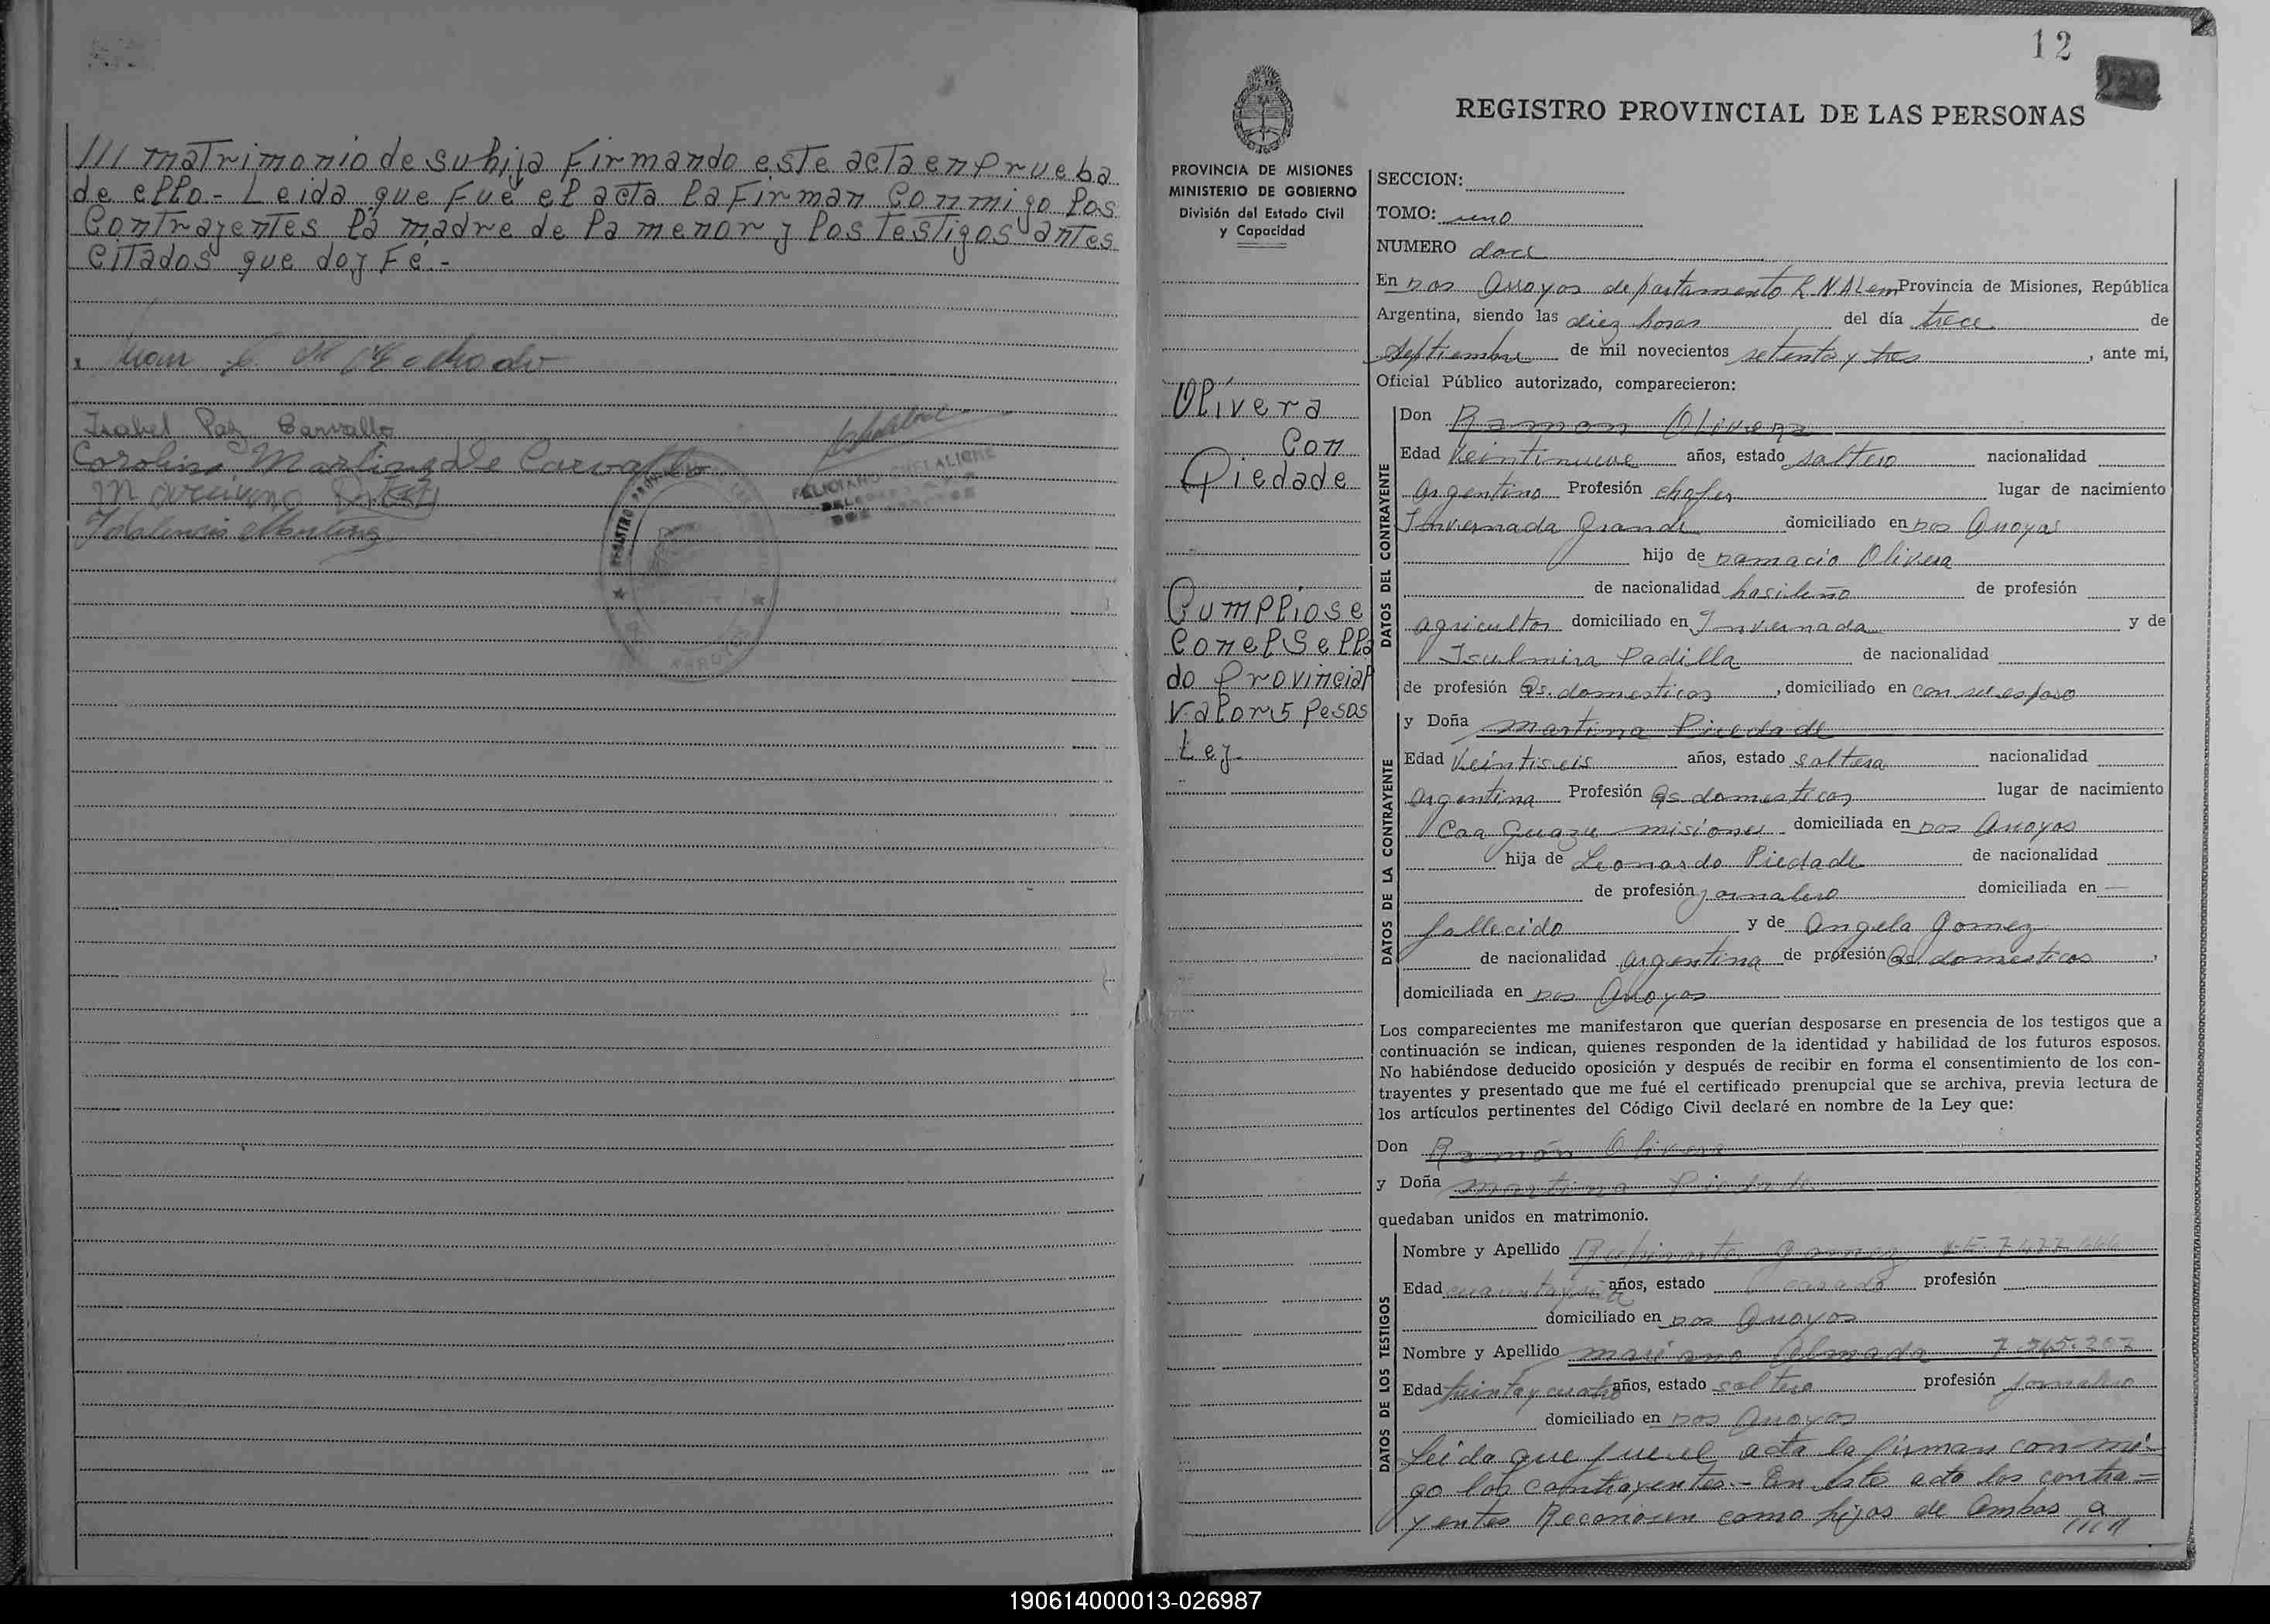 /// matrimonio de su hija firmando este acta en prueba
de ello.- Leida que fué el acta la firman conmigo los
contrayentes la madre de la menor y los testigos antes
citados que doy fe.-
Juan
Isabel Paz Carvallo
Carolina Martinez de Carvallo
Martinez
FELICIANO CHELALICHE
12
REGISTRO PROVINCIAL DE LAS PERSONAS
PROVINCIA DE MISIONES
MINISTERIO DE GOBIERNO
División del Estado Civil
y Capacidad
Olivera
con
Piedade
Cumpliose
con el sella
do provincial
valor 5 pesos
Ley.
SECCION:
TOMO: uno
NUMERO doce
En Dos Arroyos departamento L N Alem Provincia de Misiones, República
Argentina, siendo las diez horas del día trece de
Septiembre de mil novecientos setenta y tres, ante mi,
Oficial Público autorizado, comparecieron:
DATOS DEL CONTRAYENTE
Don Ramon Olivera
Edad Veintinueve años, estado soltero nacionalidad
Argentino Profesión chofer lugar de nacimiento
Invernada Grande domiciliado en Dos Arroyos
hijo de Damacio Olivera
de nacionalidad brasileño de profesión
agricultor domiciliado en Invernada y de
Isulmira Padilla de nacionalidad
de profesión Qs. domesticos, domiciliado en con su esposo
DATOS DE LA CONTRAYENTE
y Doña Martina Piedade
Edad Veintiseis años, estado soltera nacionalidad
Argentina Profesión Qs domesticos lugar de nacimiento
Caa Guazu Misiones domiciliada en Dos Arroyos
hija de Leonardo Piedade de nacionalidad
de profesión jornalero domiciliada en —
fallecido y de Angela Gomez
de nacionalidad argentina de profesión Qs. domesticos,
domiciliada en Dos Arroyos
Los comparecientes me manifestaron que querían desposarse en presencia de los testigos que a
continuación se indican, quienes responden de la identidad y habilidad de los futuros esposos.
No habiéndose deducido oposición y después de recibir en forma el consentimiento de los con-
trayentes y presentado que me fué el certificado prenupcial que se archiva, previa lectura de
los artículos pertinentes del Código Civil declaré en nombre de la Ley que:
Don Ramón Olivera
y Doña Martina Piedade
quedaban unidos en matrimonio.
DATOS DE LOS TESTIGOS
Nombre y Apellido Gomez
Edad años, estado casado profesión
domiciliado en Dos Arroyos
Nombre y Apellido Mariano Almada
Edad treinta y cuatro años, estado soltero profesión jornalero
domiciliado en Dos Arroyos
Leida que fue el acta la firman conmi-
go los contrayentes.- En este acto los contra=
yentes Reconocen como hijos de Ambos a
////
190614000013-026987